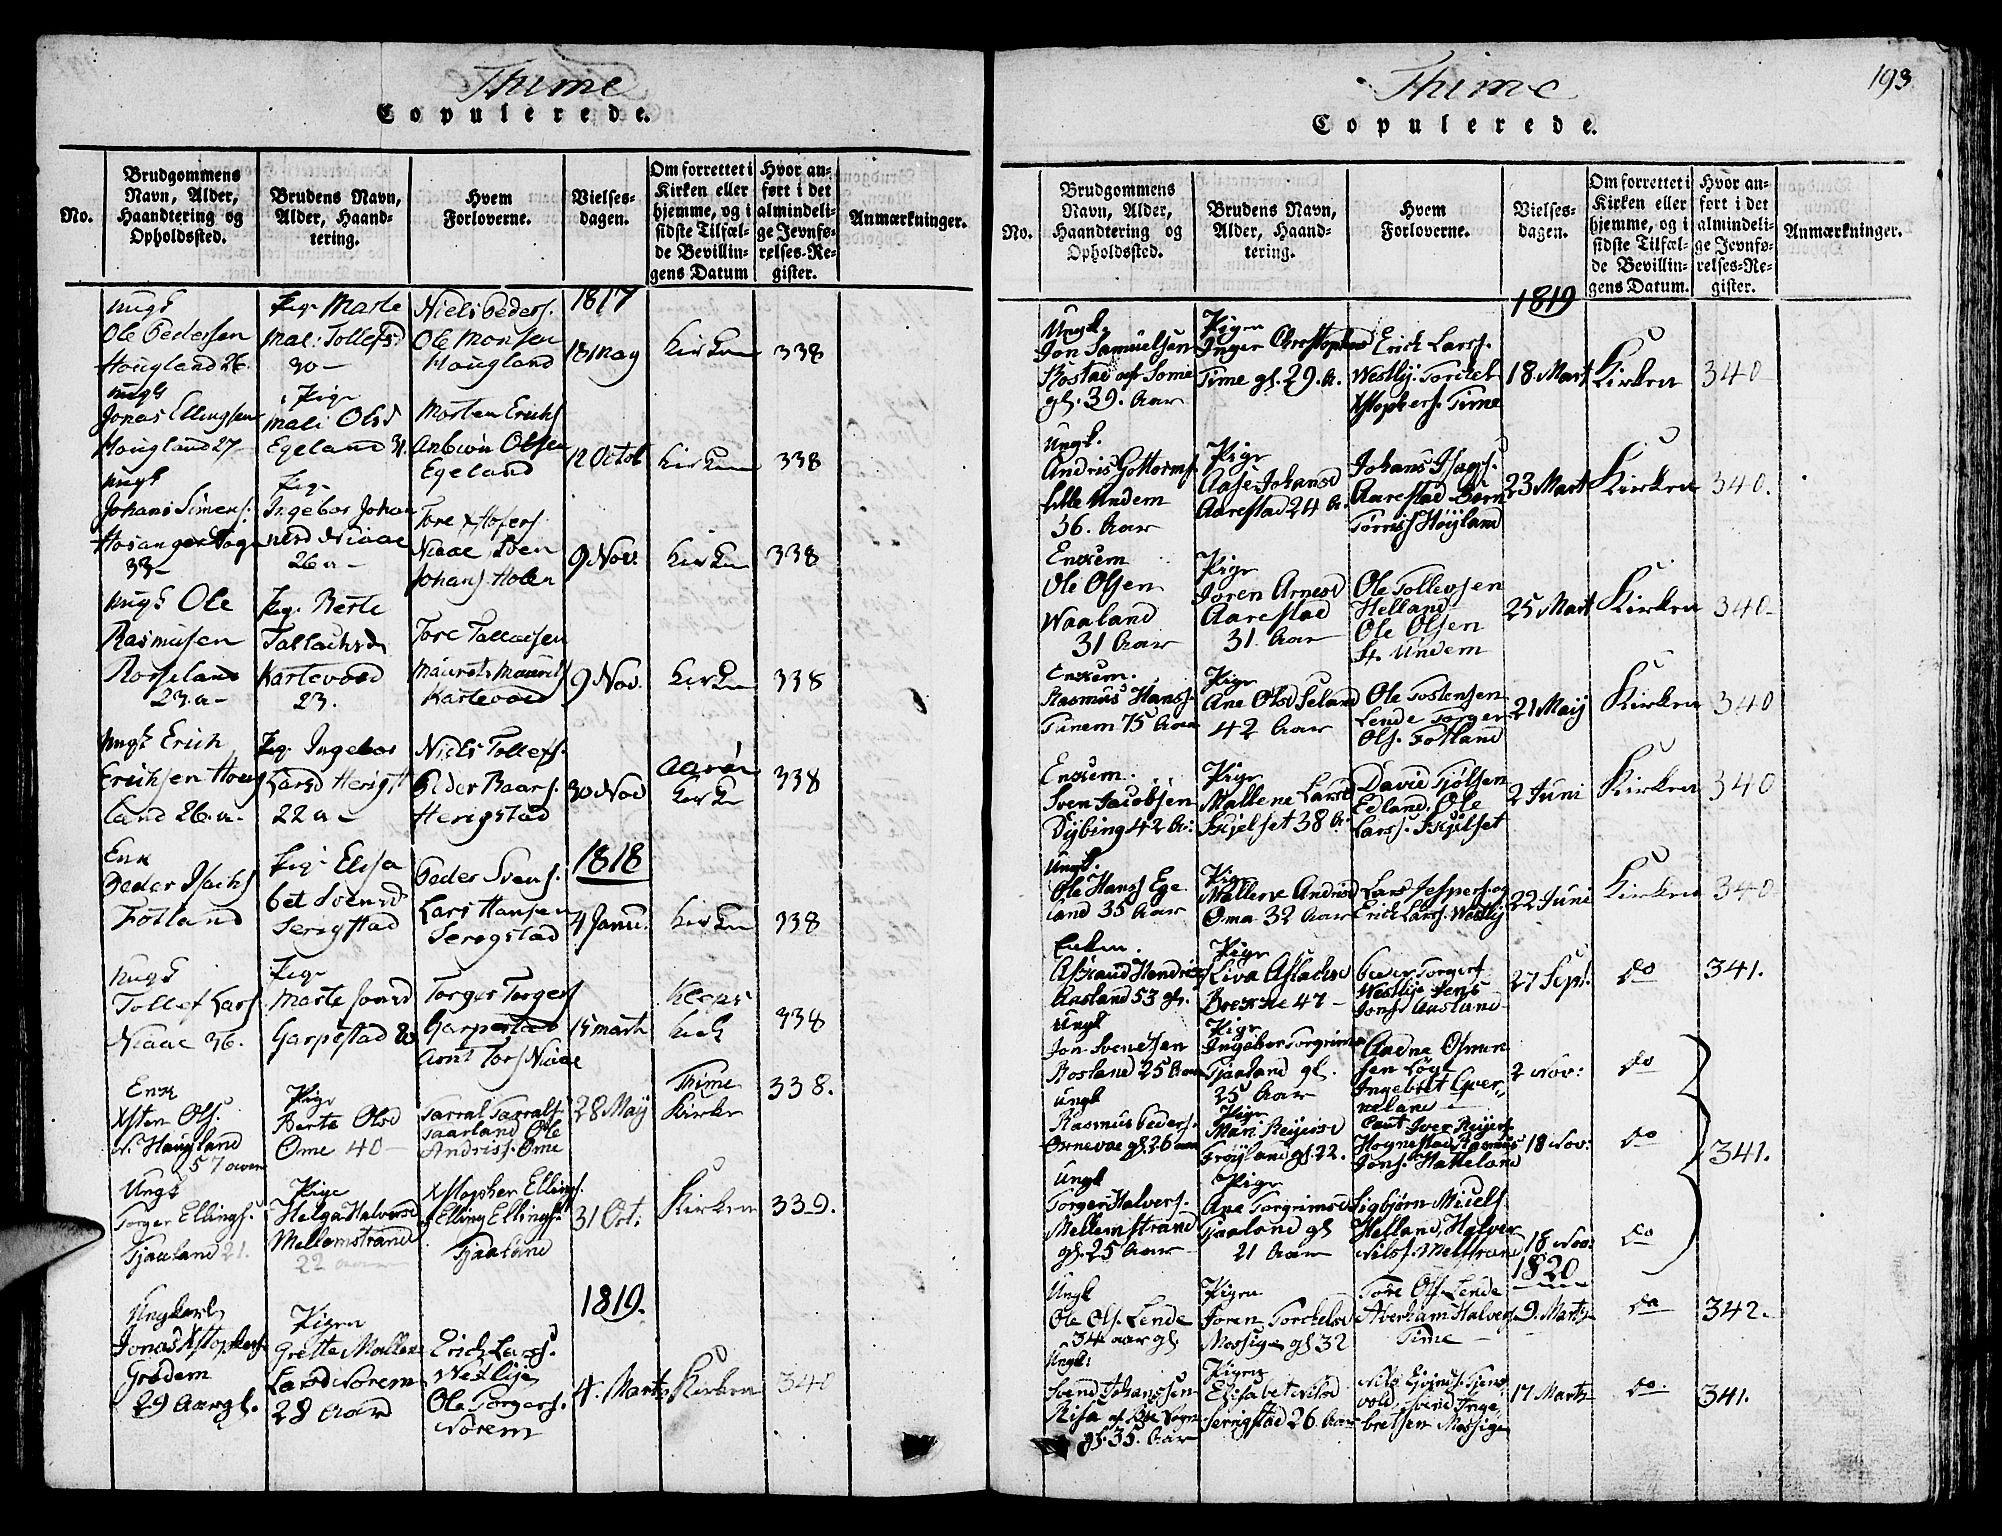 Thime
Copulerede.
No.
Brudgommens Navn, Alder, Haandtering og Opholdssted.
Brudens Navn, Alder, Haandtering.
Hvem Forloverne.
Vielses-dagen.
Om forrettet i Kirken eller hjemme, og i sidste Tilfælde Bevillingens Datum
Hvor anført i det almindelige Jevnførelses-Register.
Anmærkninger.
1817
ungk
Ole Pedersen
Hougland 26.
Pig. Marte
Mal: Tollefsd
30 –
Niels Peders.
Ole Monsen
Hougland
18 May
Kirken
338
ungk
Jonas Ellingsen
Hougland 27
Pige
Mali Olsd
Egeland 31.
Morten Erichs
Olsen
Egeland
12 Octob
Kirken
338
ungk
Johans Simens.
33 –
Pige
Ingebor Johan
nesd Niaae
26 a –
Tore Xstofers.
Niaae Sven
Johans. Holen
9 Nov.
Kirken
338
ungk Ole
Rasmusen
Rosseland
23. a –
Pig. Berte
Tallachsd
Kartevoed
23.
Tore Tallacsen
Maurits Maurits
Kartevoed
9 Nov.
Kirken
338
ungk Erich
Erichsen Houg
land 26. a –
Pig. Ingebor
Larsd Herigst
22 a –
Niels Tollefs.
Peder Baars.
Herigstad
30 Nov
Kirke
338
1818
Enk
Peder Isachs
Fotland
Pig. Elisa
bet Svensd
Serigstad
Peder Svens.
Lars Hansen
Serigstad
4 Janu.
Kirken
338
ungk
Tollef Lars.
Niaae 36.
Pige
Marte Jonsd
Garpestad
Torger Torgers
Garpestad
Arnt Tors Niaae
15 marti
Kleps
Kirk
338
Enk
Xsten Ols.
N. Haugland
57 aar
Pige
Berte Olsd
Ome 40 –
Tarral Tarrals.
Taarland Ole
Andriss. Ome
28 May
Thime
Kirke
338.
Ungk
Torger Ellings.
Tjaaland 21.
Pige
Helga Halvorsd
Mellomstrand
22 aar
Xstopher Ellings.
Elling Ellings.
Tjaaland
31 Oct:
Kirken
339.
1819.
Ungkarl
Jonas Xstophers.
Grødem
29 Aar gl.
Pigen
Grette Mallene
Larsd Norem
28 Aar
Erich Lars.
Westlye
Ole Torgers.
Norem
4. Marts
Kirken
340
Thime
193
Copulerede.
No.
Brudgommens Navn, Alder, Haandtering og Opholdssted.
Brudens Navn, Alder, Haandtering.
Hvem Forloverne.
Vielses-dagen.
Om forrettet i Kirken eller hjemme, og i sidste Tilfælde Bevillingens Datum.
Hvor anført i det almindelige Jevnførelses-Register.
Anmærkninger.
1819
Ungk.
Jon Samuelsen
Rostad af Some
gl. 39. Aar
Pigen
Inger Christophersd
Time gl. 29. A.
Erich Larss.
Westlij. Torckel
Xstophers. Time
18. Mart
Kirken
340
Ungk.
Andris Gottorms.
Lille Undem
36. Aar
Pige
Aase Johansd
Aarestad 24 A.
Johans Isags.
Aarestad Børn
Torriss Høyland
23 Mart
Kirken
340.
Enkem
Ole Olsen
Waaland
31 Aar
Pige
Joren Arnesd
Aarestad
31. Aar
Ole Tollevsen
Helland
Ole Olsen
St. Undem
25 Mart
Kirken
340
Enkem.
Rasmus Hanss.
Tunem 75 Aar
Pige
Ane Olsd Seland
42 Aar
Ole Tostensen
Lende Torger
Ols. Fotland
21 Maij
Kirken
340
Enkem.
Sven Jacobsen
Dybing 42 A:
Pige
Mallene Larsd
Skjelset 38 A:
David Tjølsen
Edland, Ole
Larss. Skjelset
2 Juni
Kirken
340
Ungk.
Ole Hanss Ege
land 35 Aar
Pige
Mallene Andrisd
Oma 32 Aar
Lars Jespers. og
Erich Larss. Westlij
22 Juni
Kirken
340
Enkem.
Asland 53 gl.
Pige
Siva Aslachsd
Brekke 47 –
Peder Torgers
Westlije Jens
Jons. Aasland
27 Sept.
do
341.
Ungk
Jon Svendsen
Rosland 25 Aar
Pige
Ingebor Torgrimsd
Tjaaland gl.
25 Aar
Aadne Osmun
sen Løge
Ingebret Qver-
neland –
2 Nov:
do
Ungk
Rasmus Peders.
Ornevae gl. 26 aar
Pige
Mari Reijersd
Frøyland gl. 22.
Cant Iver Reijers.
Hognestad Rasmus
Jons. Hatteland
18 Nov:
do
341.
Ungk
Torger Halvers.
Mellemstrand
gl. 25 Aar
Pige
Ane Torgrimsd
Tjaaland gl
21 Aar
Sigbjørn Micels.
Helland, Halver
Nilss. Melstrand
18 Nov:
do
1820
Ungk
Ole Ols. Lende
34 aar gl.
Pigen
Joren Torckelsd
Mossige gl 32
Tore Ols. Lende
Averham Halvers.
Time –
9. Marts
do
342.
Ungk:
Svend Johanssen
Risa
gl. 35. Aar
Pigen
Elisabet Nilsd
Serigstad 26 Aar
Svend Inge
bretsen Mossige
17 Marts
do
341.